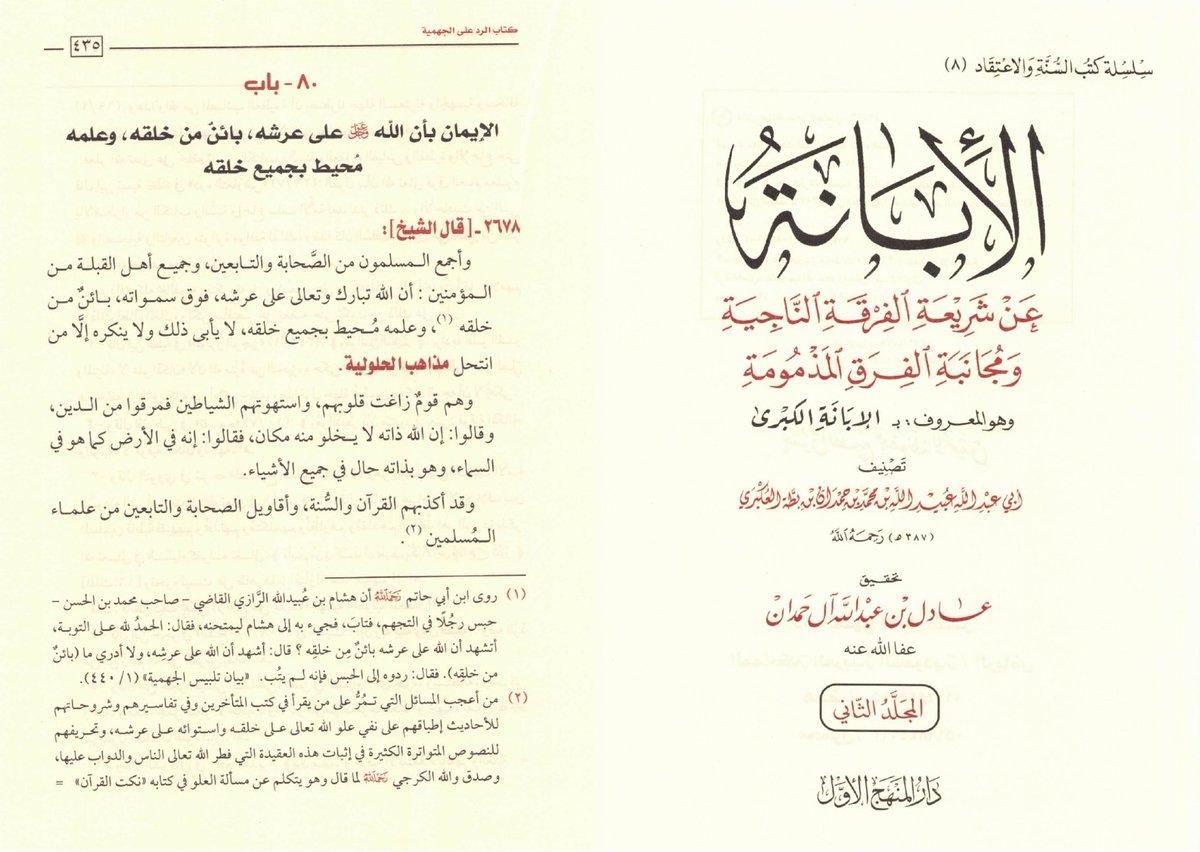 سِلسِلة كتُب السُّنَّةِ وَالاعْتِقَاد (٨)
الإِبَانَةُ
عَنْ شَرِيْعَةِ الفِرْقَةِ النَّاجِيَةِ
وَمُجَانَبَةِ الفِرَقِ المَذْمُومَةِ
وهو المعروف: بـ الإبَانَةِ الكبْرىٰ
تَصْنِيف
ابي عَبْدِ اللهِ عُبَيْدِ اللهِ بْنِ مُحَمَّدِ بْنِ حَمْدَانَ بْنِ بطَّةَ العُكْبَرِي
(٣٨٧ هـ) رَحِمَهُ اللهُ
تحقيق
عَادِل بْن عَبْدِ اللهِ آل حَمْدَانْ
عفا الله عنه
المجَلَّدُ الثَّاني
دَارُ المَنْهَجِ الأوَّل
كتاب الرد على الجهمية
٤٣٥
٨٠ - باب
الإيمان بأن الله ﷻ على عرشه، بائنٌ من خلقه، وعلمه
مُحيط بجميع خلقه
٢٦٧٨ ـ [قال الشيخ]:
وأجمع المسلمون من الصَّحابة والتابعين، وجميع أهل القبلة من
المؤمنين : أن الله تبارك وتعالى على عرشه، فوق سمواته، بائنٌ من
خلقه (١)، وعلمه مُحيط بجميع خلقه، لا يأبى ذلك ولا ينكره إلَّا من
انتحل مذاهب الحلولية .
وهم قومٌ زاغت قلوبهم، واستهوتهم الشياطين فمرقوا من الدين،
وقالوا: إن الله ذاته لا يخلو منه مكان، فقالوا: إنه في الأرض كما هو في
السماء، وهو بذاته حال في جميع الأشياء.
وقد أكذبهم القرآن والسُّنة، وأقاويل الصحابة والتابعين من علماء
المُسلمين (٢).
(١) روى ابن أبي حاتم رَحِمَهُ اللهُ أن هشام بن عُبيدالله الرَّازي القاضي – صاحب محمد بن الحسن –
حبس رجُلًا في التجهم، فتابَ، فجيء به إلى هشام ليمتحنه، فقال: الحمدُ لله على التوبة،
أتشهد أن الله على عرشه بائنٌ مِن خلقِه ؟ قال: أشهد أن الله على عرشِه، ولا أدري ما (بائنٌ
من خلقِه). فقال: ردوه إلى الحبس فإنه لم يتُب. «بيان تلبيس الجهمية» (١/ ٤٤٠).
(٢) من أعجب المسائل التي تمُرُّ على من يقرأ في كتب المتأخرين وفي تفاسيرهم وشروحاتهم
للأحاديث إطباقهم على نفي علو الله تعالى على خلقه واستوائه على عرشه، وتحريفهم
للنصوص المتواترة الكثيرة في إثبات هذه العقيدة التي فطر الله تعالى الناس والدواب عليها،
وصدق والله الكرجي رَحِمَهُ اللهُ لما قال وهو يتكلم عن مسألة العلو في كتابه «نكت القرآن» =